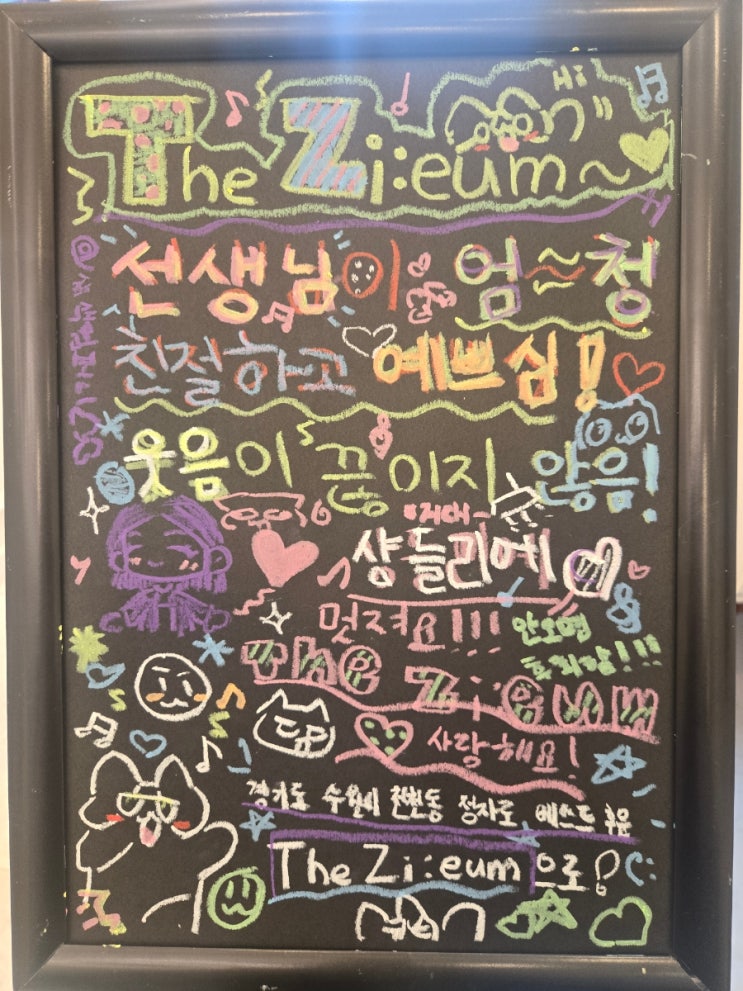 Hi
The Zi:eum~
선생님이 엄~청
친절하고 예쁘심!
웃음이 끊이지 않음!
거대~
샹들리에
멋져요!!!
안오면
후회함!!!
The Zi:eum
사랑해요!
경기도 수원시 천천동 정자로
The Zi:eum으로!